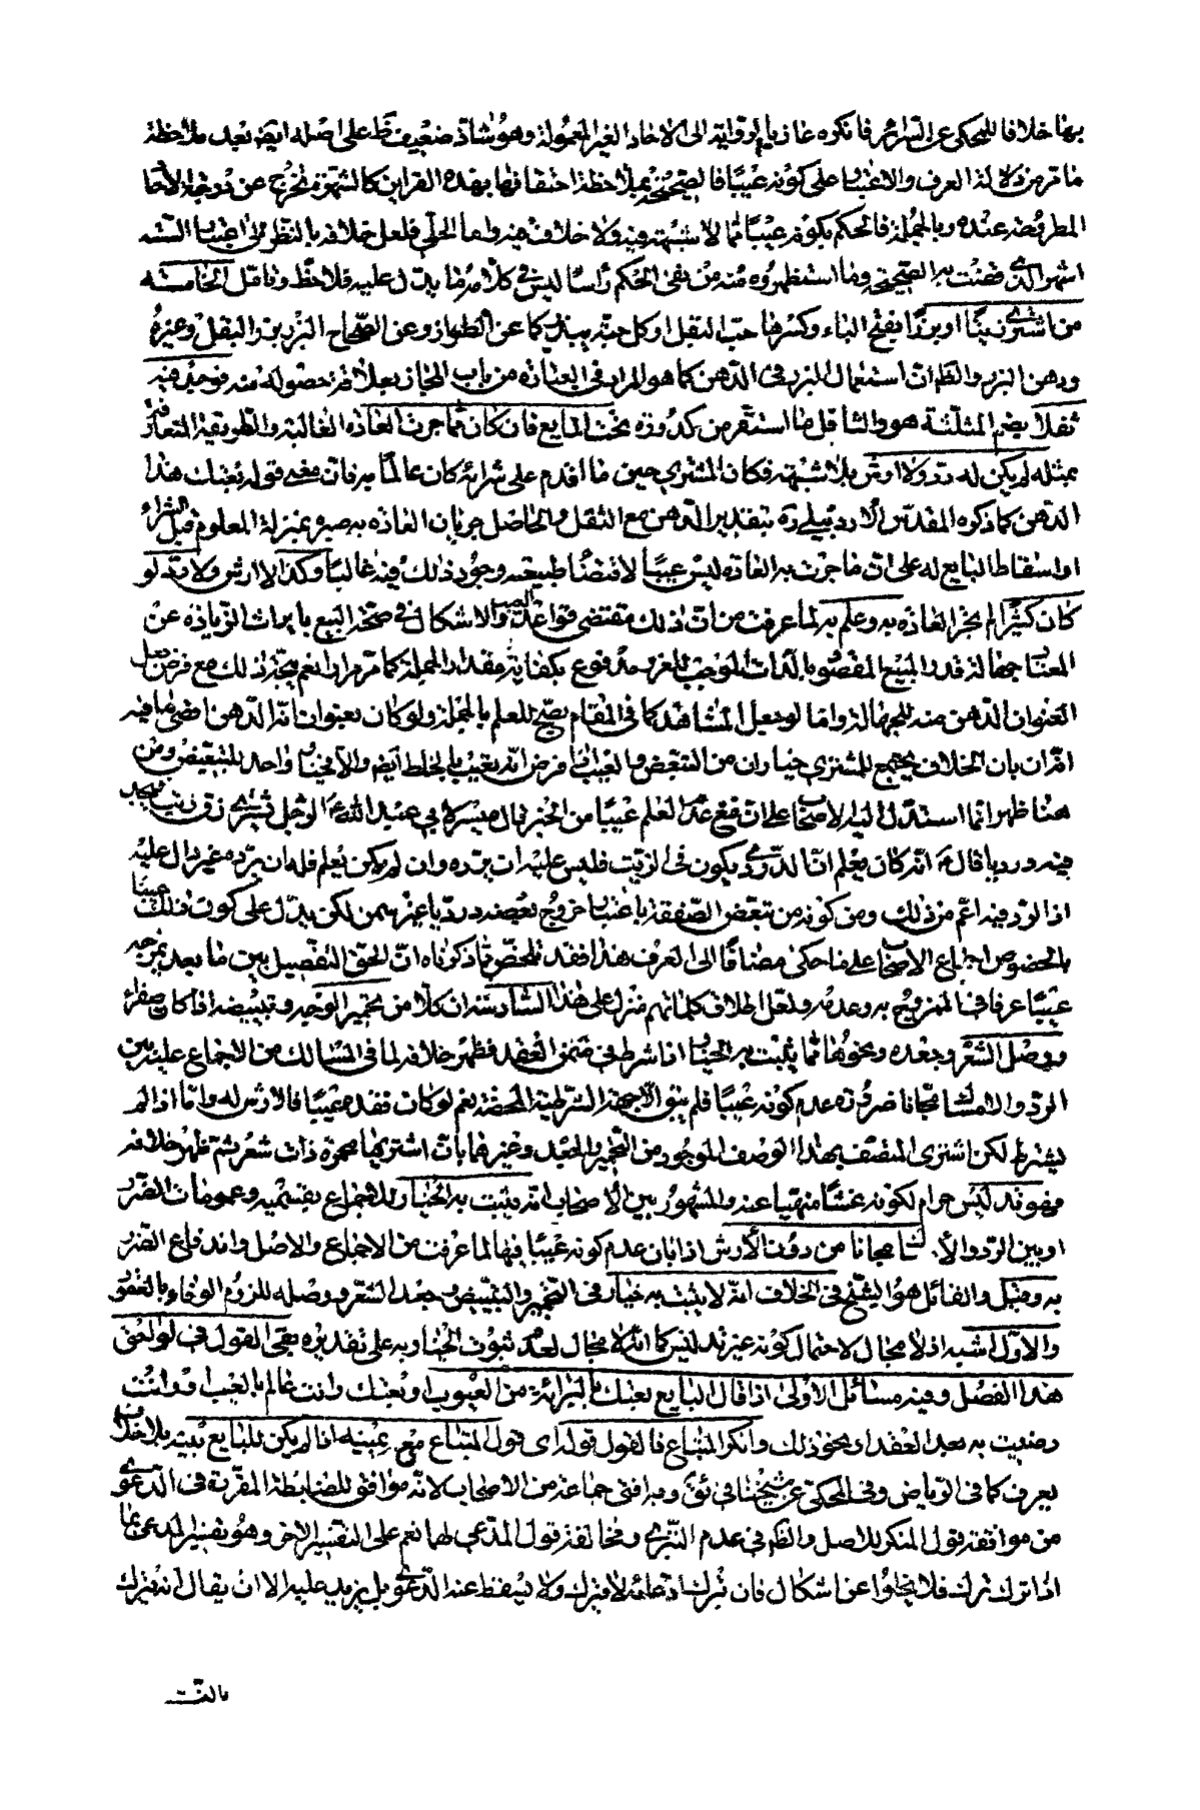 بها خلافا للمحكى عن السرائر فانكره عازيا روايته الى الاحاد الغير المعمولة وهو شاذ ضعيف ظ على اصله ايضا بعد ملاحظة
ما مر من دلالة العرف والاعتبار على كونه عيبا فالصحيحة بملاحظة احتفافها بهذه القراين كالشهرة تخرج عن درجة الاحاد
المطروحة عنده وبالجملة فالحكم بكونه عيبا مما لا شبهة فيه ولا خلاف فيه واما الحلى فلعل خلافه بالنظر الى اعتبار الستة
اشهر الذى قضت به الصحيحة وما استظهروه منه من نفى الحكم رأسا ليس فى كلامه ما يدل عليه فلاحظ وتامل الخامسة
من اشترى زيتا او بزرا بفتح الباء وكسرها حب البقل او كل حبة يبذر كما عن الطراز وعن الصحاح البزر بزر البقل وغيره
ودهن البزر والظ ان استعمال البزر فى الدهن كما هو المراد فى العبارة من باب المجاز بعلاقة حصوله منه فوجد فيه
ثفلا بضم المثلثة هو والثافل ما استقر من كدورة تحت المايع فان كان مما جرت العادة الغالبة والطريقة المتعارفة
بمثله لم يكن له رد ولا ارش بلا شبهة فكان المشترى حين ما اقدم على شرائه كان عالما به فان معنى قوله بعتك هذا
الدهن كما ذكره المقدس الاردبيلى ره بتقدير الدهن مع الثفل والحاصل جريان العادة به صيره بمنزلة المعلوم قبل الشراء
او اسقاط البايع له على ان ما جرت به العادة ليس عيبا لاقتضاء طبيعته وجود ذلك فيه غالبا وكذا لا ارش ولا رد لو
كان كثيرا لم تجر العادة به وعلم به لما عرفت من ان ذلك مقتضى قواعد العيب والاشكال فى صحة البيع بايراث الزيادة عن
المعتاد جهالة قدر المبيع المقصود بالذات الموجب للغرر مدفوع بكفاية مقدار الجملة كما مر مرارا نعم يتجه ذلك مع فرض جعل
العنوان الدهن منه للجهالة واما لو جعل المشاهد كما فى المقام يصح للعلم بالجملة ولو كان بعنوان انه الدهن اضى ما فيه
انه ان بان الخلاف يجمع للمشترى خياران من التبعض والعيب ان فرض انه يعيب بالخلط ايضا والا فخيار واحد للتبعيض ومن
هنا ظهر ان ما استدل به الاصحاب على ان مع عدم العلم عيبا من الخبر قال ميسر لابى عبد الله ع الرجل يشترى زق زيت فيجد
فيه درديا قال ع ان كان يعلم ان الدردى يكون فى الزيت فليس عليه ان يرده وان لم يكن يعلم فله ان يرده غير دال عليه
اذ الرد فيه اعم من ذلك ومن كونه من تبعض الصفقة باعتبار خروج بعضه درديا غير سمن لكن يدل على كون ذلك عيبا
بالخصوص اجماع الاصحاب على ما حكى مضافا الى العرف هذا فقد تلخص مما ذكرناه ان الحق التفصيل بين ما يعد مزجه
عيبا عرفا فى الممزوج به وعدمه ولعل اطلاق كلماتهم منزل على هذا السادسة ان كلا من تحمير الوجه وتبييضه اذا كان صفراء
ووصل الشعر وجعده ونحوها مما يثبت به الخيار اذا شرط فى ضمن العقد فظهر خلافه لما فى المسالك من الاجماع عليه بين
الرد والامساك مجانا ضرورة عدم كونه عيبا فلم يبق الا جهة الشرطية المحضة نعم لو كانت فقد معيبا فالارش له واما اذا لم
يشترط لكن اشترى المتصف بهذا الوصف الموجود من التحمير والجعد وغيرهما بان اشتريها محمرة ذات شعر ثم ظهر خلافه
فهو تدليس حرام لكونه غشا منهيا عنه والمشهور بين الاصحاب انه يثبت به الخيار وللاجماع بقسميه وعمومات الضرر
او بين الرد والامساك مجانا من دون الارش اذا بان عدم كونه عيبا فيها لما عرفت من الاجماع والاصل واندفاع الضرر
به وقيل والقائل هو الشيخ فى الخلاف انه لا يثبت به خيار فى التحمير والتبييض وجعد الشعر ووصله للزوم الوفاء بالعقود
والاول اشبه اذ لا مجال لاحتمال كونه غير تدليس كما انه لا مجال لعدم ثبوت الخيار به على تقديره بقى القول فى لواحق
هذا الفصل وفيه مسائل الاولى اذا قال البايع بعتك بالبرائة من العيوب او بعتك وانت عالم بالعيب او وانت
رضيت به بعد العقد او نحو ذلك وانكر المبتاع فالقول قوله اى قول المبتاع مع يمينه اذا لم يكن للبايع بينة بلا خلاف
يعرف كما فى الرياض وفى المحكى عن شيخنا فى ئق وبه افتى جماعة من الاصحاب لانه موافق للضابطة المقررة فى الدعوى
من موافقة قول المنكر للاصل والظ فى عدم التبرى ومخالفة قول المدعى لها نعم على التفسير الاخر وهو تفسير المدعى بما
اذا ترك ترك فلا يخلوا عن اشكال فان ترك ادعائه لا يترك ولا يسقط عنه الدعوى بل يزيد عليه الا ان يقال انه يترك
بالنسبة